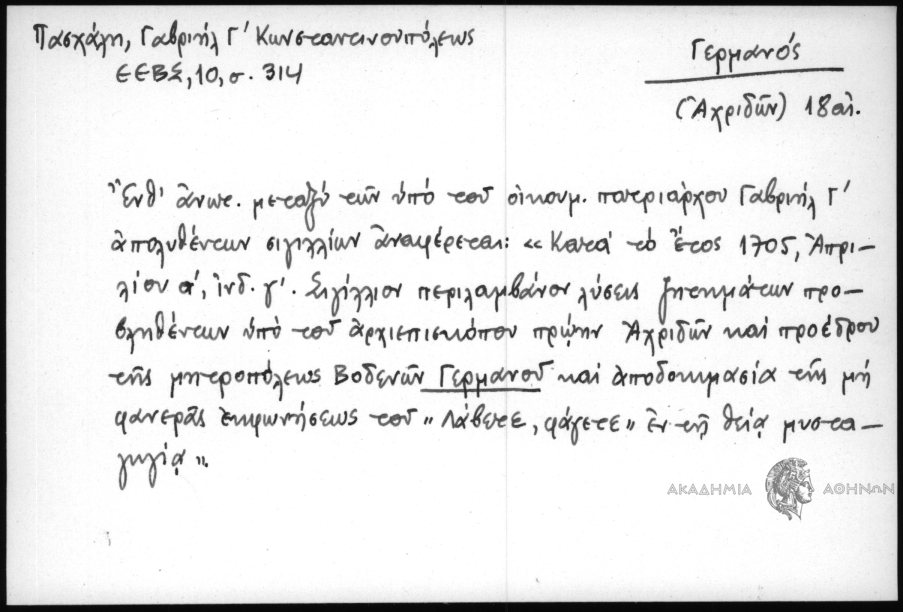 Πασχάλη, Γαβριήλ Γ' Κωνσταντινουπόλεως
ΕΕΒΣ, 10, σ. 314
Γερμανός
(Ἀχριδῶν) 18 αἰ.
Ἔνθ' ἄνωτ. μεταξύ τῶν ὑπό τοῦ οἰκουμ. πατριάρχου Γαβριήλ Γ'
ἀπολυθέντων σιγιλλίων ἀναφέρεται: «Κατά τό ἔτος 1705, Ἀπρι-
λίου α', ἰνδ. γ'. Σιγίλλιον περιλαμβάνον λύσεις ζητημάτων προ-
βληθέντων ὑπό τοῦ ἀρχιεπισκόπου πρῴην Ἀχριδῶν καί προέδρου
τῆς μητροπόλεως Βοδενῶν Γερμανοῦ καί ἀποδοκιμασία τῆς μή
φανερᾶς ἐκφωνήσεως τοῦ "Λάβετε, φάγετε" ἐν τῇ θείᾳ μυστα-
γωγίᾳ».
ΑΚΑΔΗΜΙΑ ΑΘΗΝΩΝ